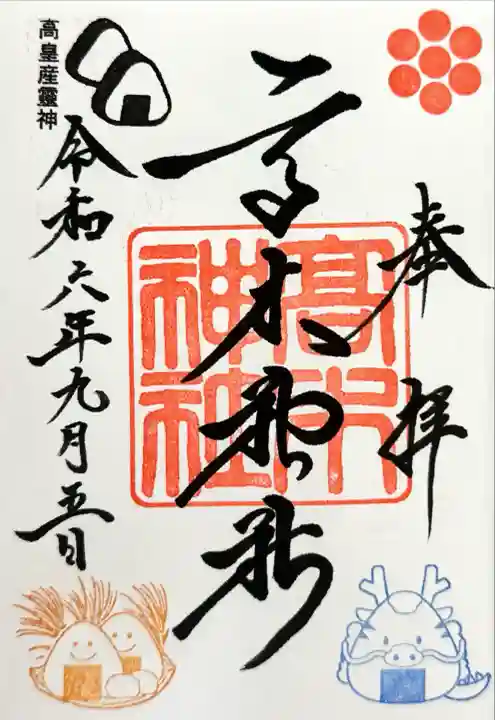 奉拝
高木神社
高木
神社
高皇産靈神
令和六年九月五日